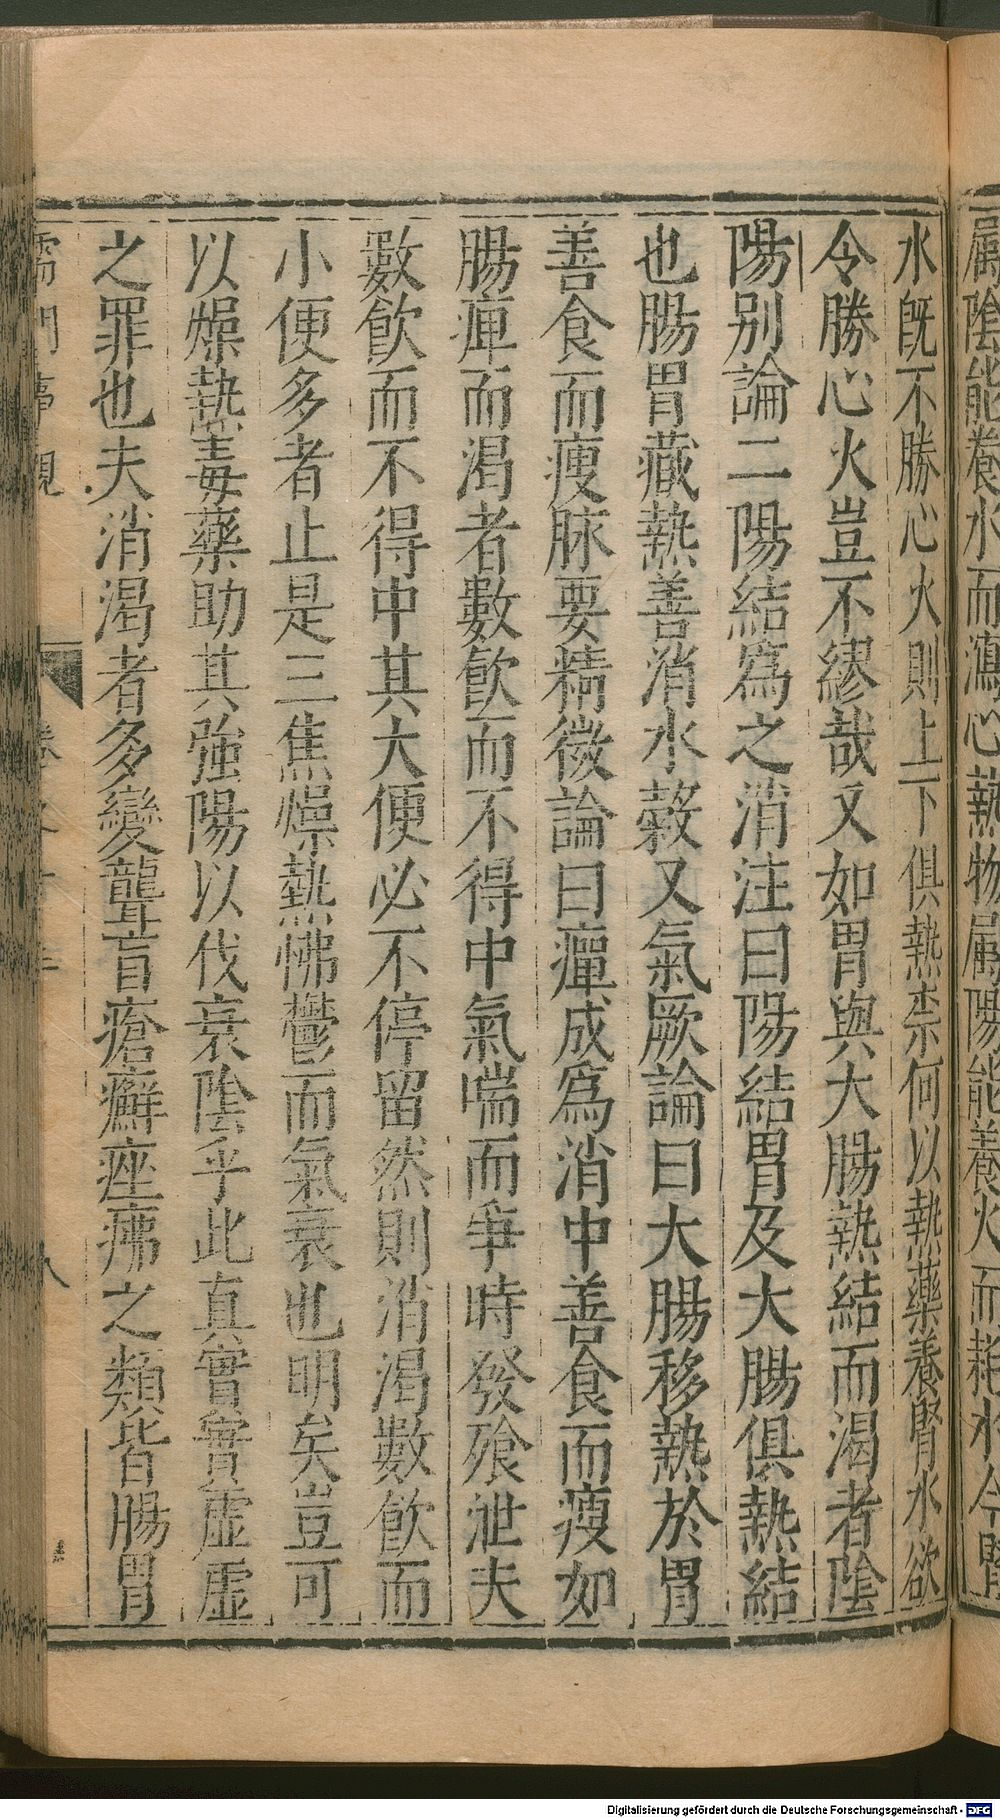 屬陰能養水而瀉心熱物屬陽能養火而耗水今腎
水旣不勝心火則上下俱熱柰何以熱藥養腎水欲
令勝心火豈不繆哉又如胃與大腸熱結而渴者陰
陽別論二陽結爲之消注曰陽結胃及大腸俱熱結
也腸胃藏熱善消水穀又氣厥論曰大腸移熱於胃
善食而瘦脉要精微論曰癉成爲消中善食而瘦如
腸痺而渴者數飮而不得中氣喘而爭時發飱泄夫
數飮而不得中其大便必不停留然則消渴數飮而
小便多者止是三焦燥熱怫鬱而氣衰也明矣豈可
以燥熱毒藥助其強陽以伐衰陰乎此真實實虛虛
之罪也夫消渴者多變聾盲瘡癬痤疿之類皆腸胃
儒門事親 卷之十三 八
Digitalisierung gefördert durch die Deutsche Forschungsgemeinschaft - DFG